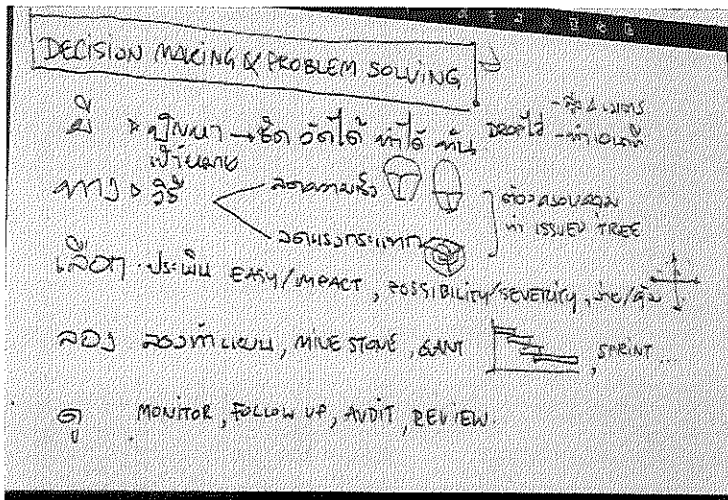 DECISION MAKING & PROBLEM SOLVING
ชี้ ปัญหา → ชัด วัดได้ ทำได้ ทัน DROP ไข่ - สูง 4 เมตร
เป้าหมาย
ทาง วิธี ลดความเร็ว ต้องครอบคลุม
ทำ ISSUED TREE
ลดแรงกระแทก
เลือก ประเมิน EASY/IMPACT, POSSIBILITY/SEVERITY, ง่าย/คุ้ม
ลอง ลองทำแผน, MILE STONE, GANT, SPRINT...
ดู MONITOR, FOLLOW UP, AUDIT, REVIEW